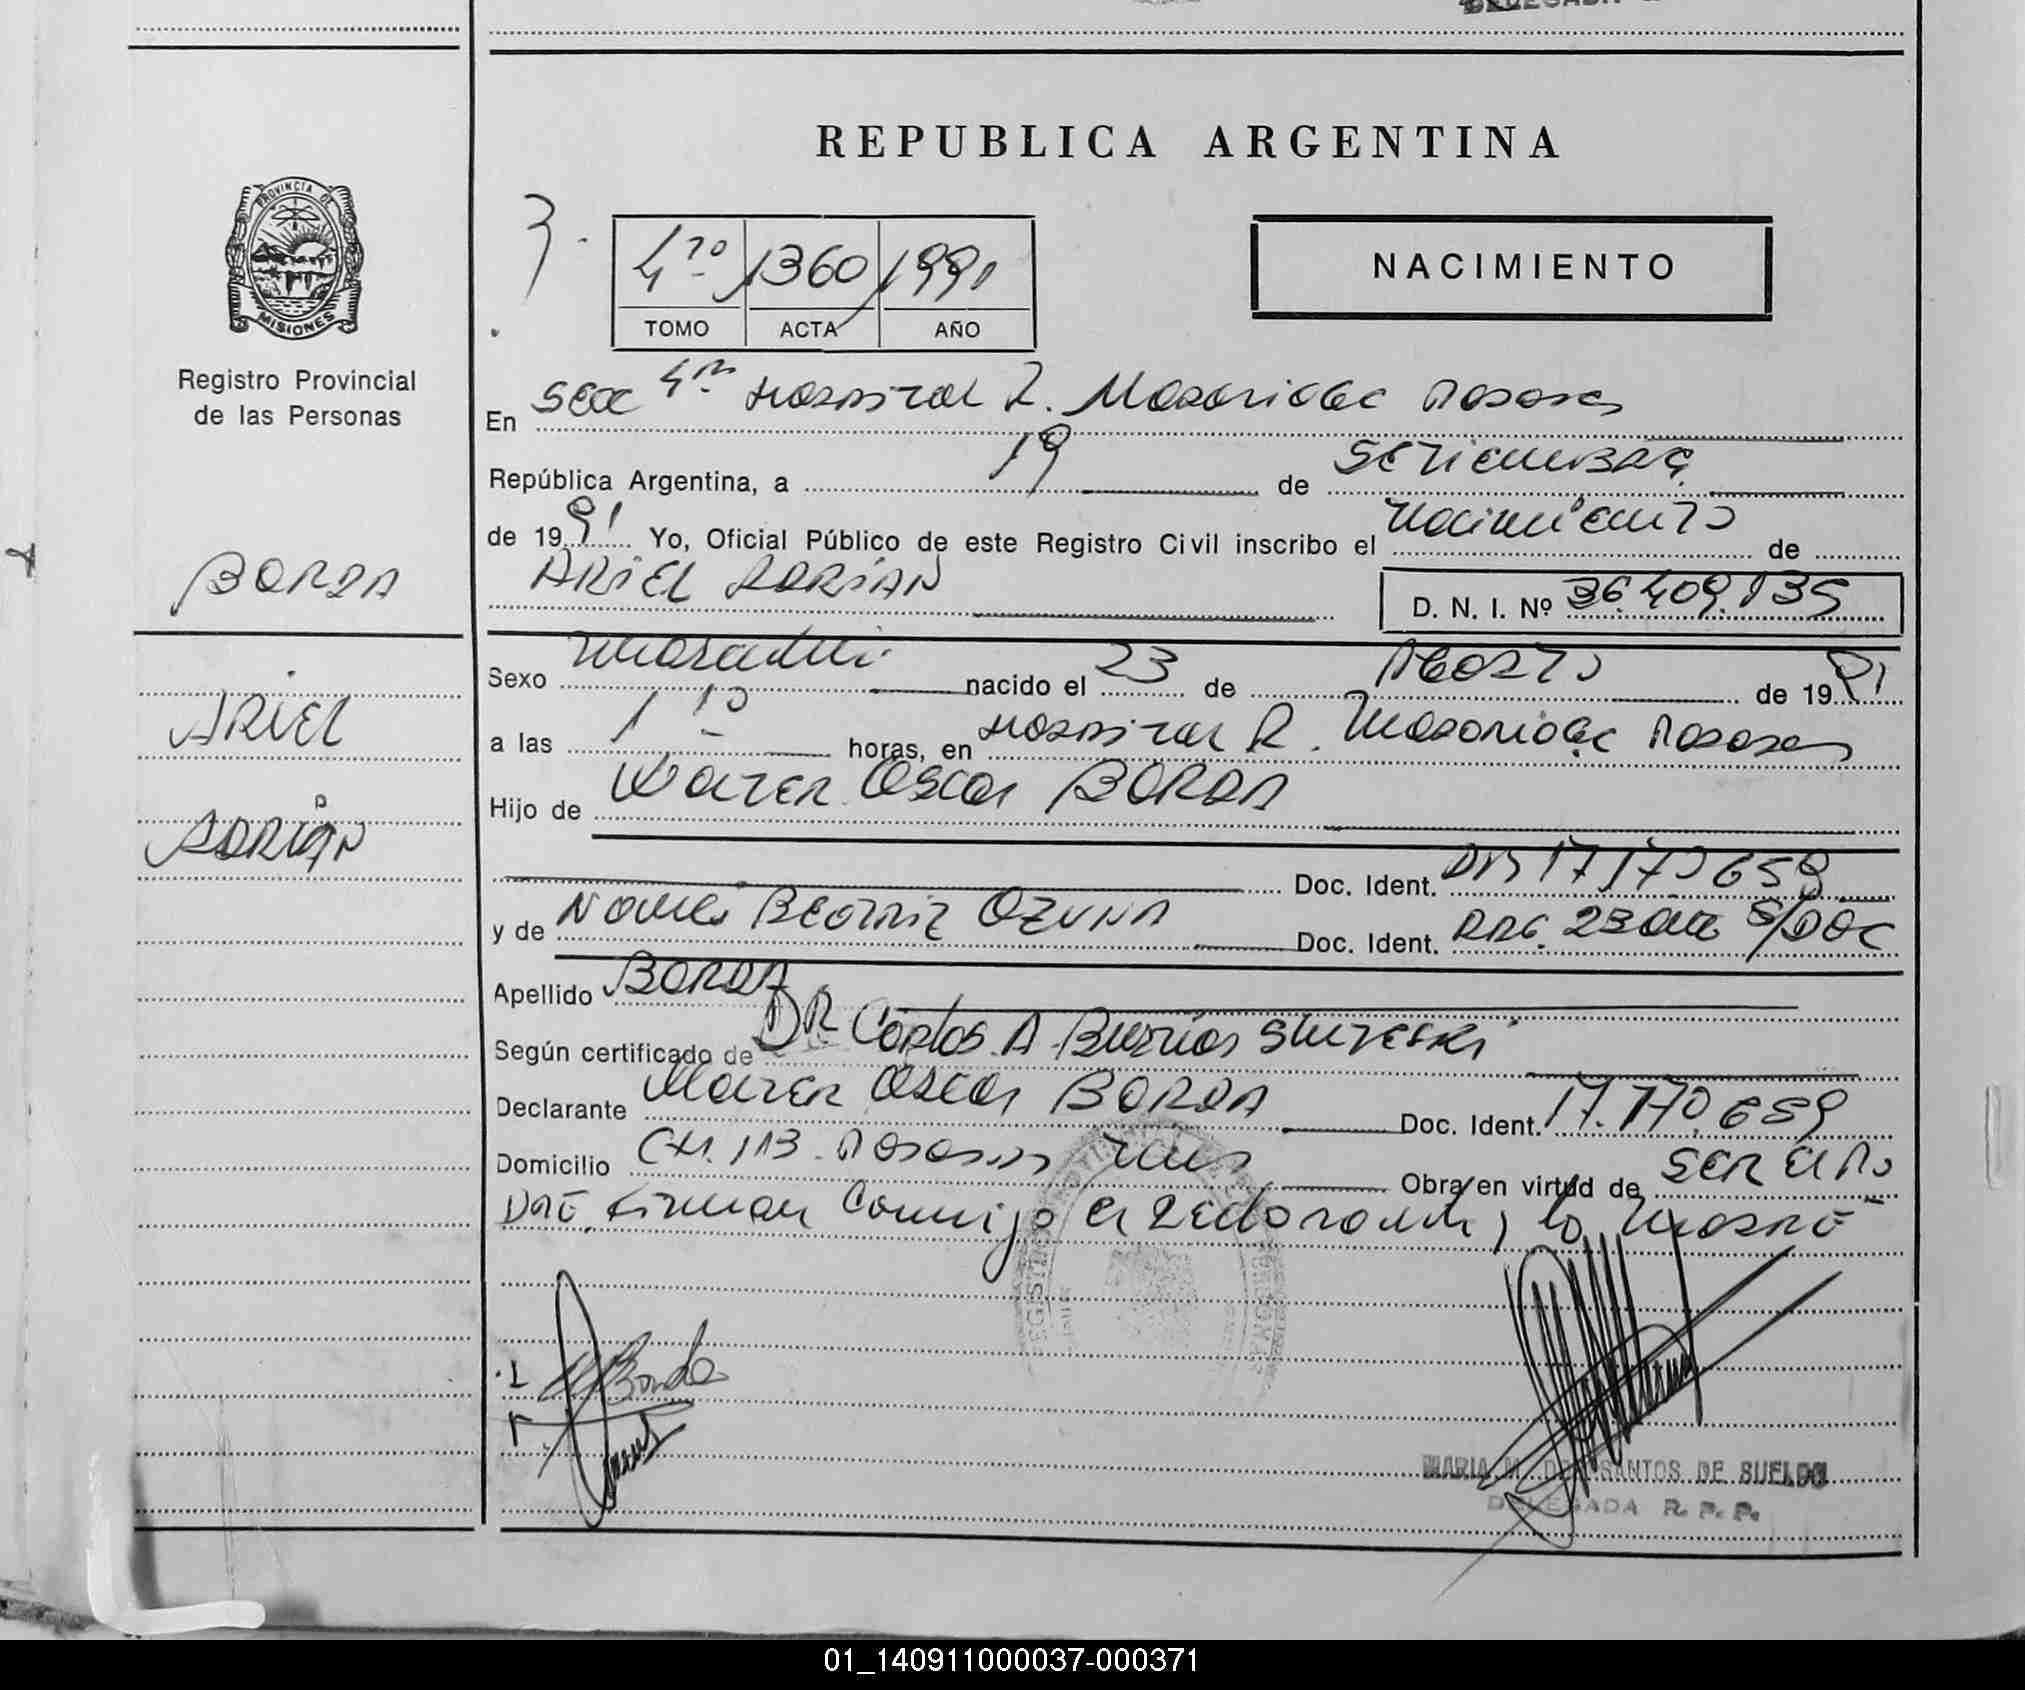 REPUBLICA ARGENTINA
PROVINCIA DE
MISIONES
Registro Provincial
de las Personas
3.
4to 1360 1991
TOMO ACTA AÑO
NACIMIENTO
En Secc 4ta Hospital R. Madariaga Posadas
República Argentina, a 19 de Setiembre
de 1991 Yo, Oficial Público de este Registro Civil inscribo el nacimiento de
BORDA
ARIEL ADRIAN
D. N. I. Nº 36.409.135
Sexo masculino nacido el 23 de Agosto de 1991
ARIEL
a las 1 10 horas, en Hospital R. Madariaga Posadas
Hijo de Walter Oscar BORDA
ADRIAN
Doc. Ident. DNI 17170659
y de Noemi Beatriz OZUNA Doc. Ident. ARG. 23 años S/DOC
Apellido BORDA
Según certificado de DR Carlos A
Declarante Walter Oscar BORDA Doc. Ident. 17.170.659
Domicilio CH. 113 Posadas Mnes Obra en virtud de SER EL PA
DRE. Firman Conmigo el Declarante y la Madre
Borda
MARIA M. DOS SANTOS DE SUELDO
DELEGADA R. P. P.
01_140911000037-000371